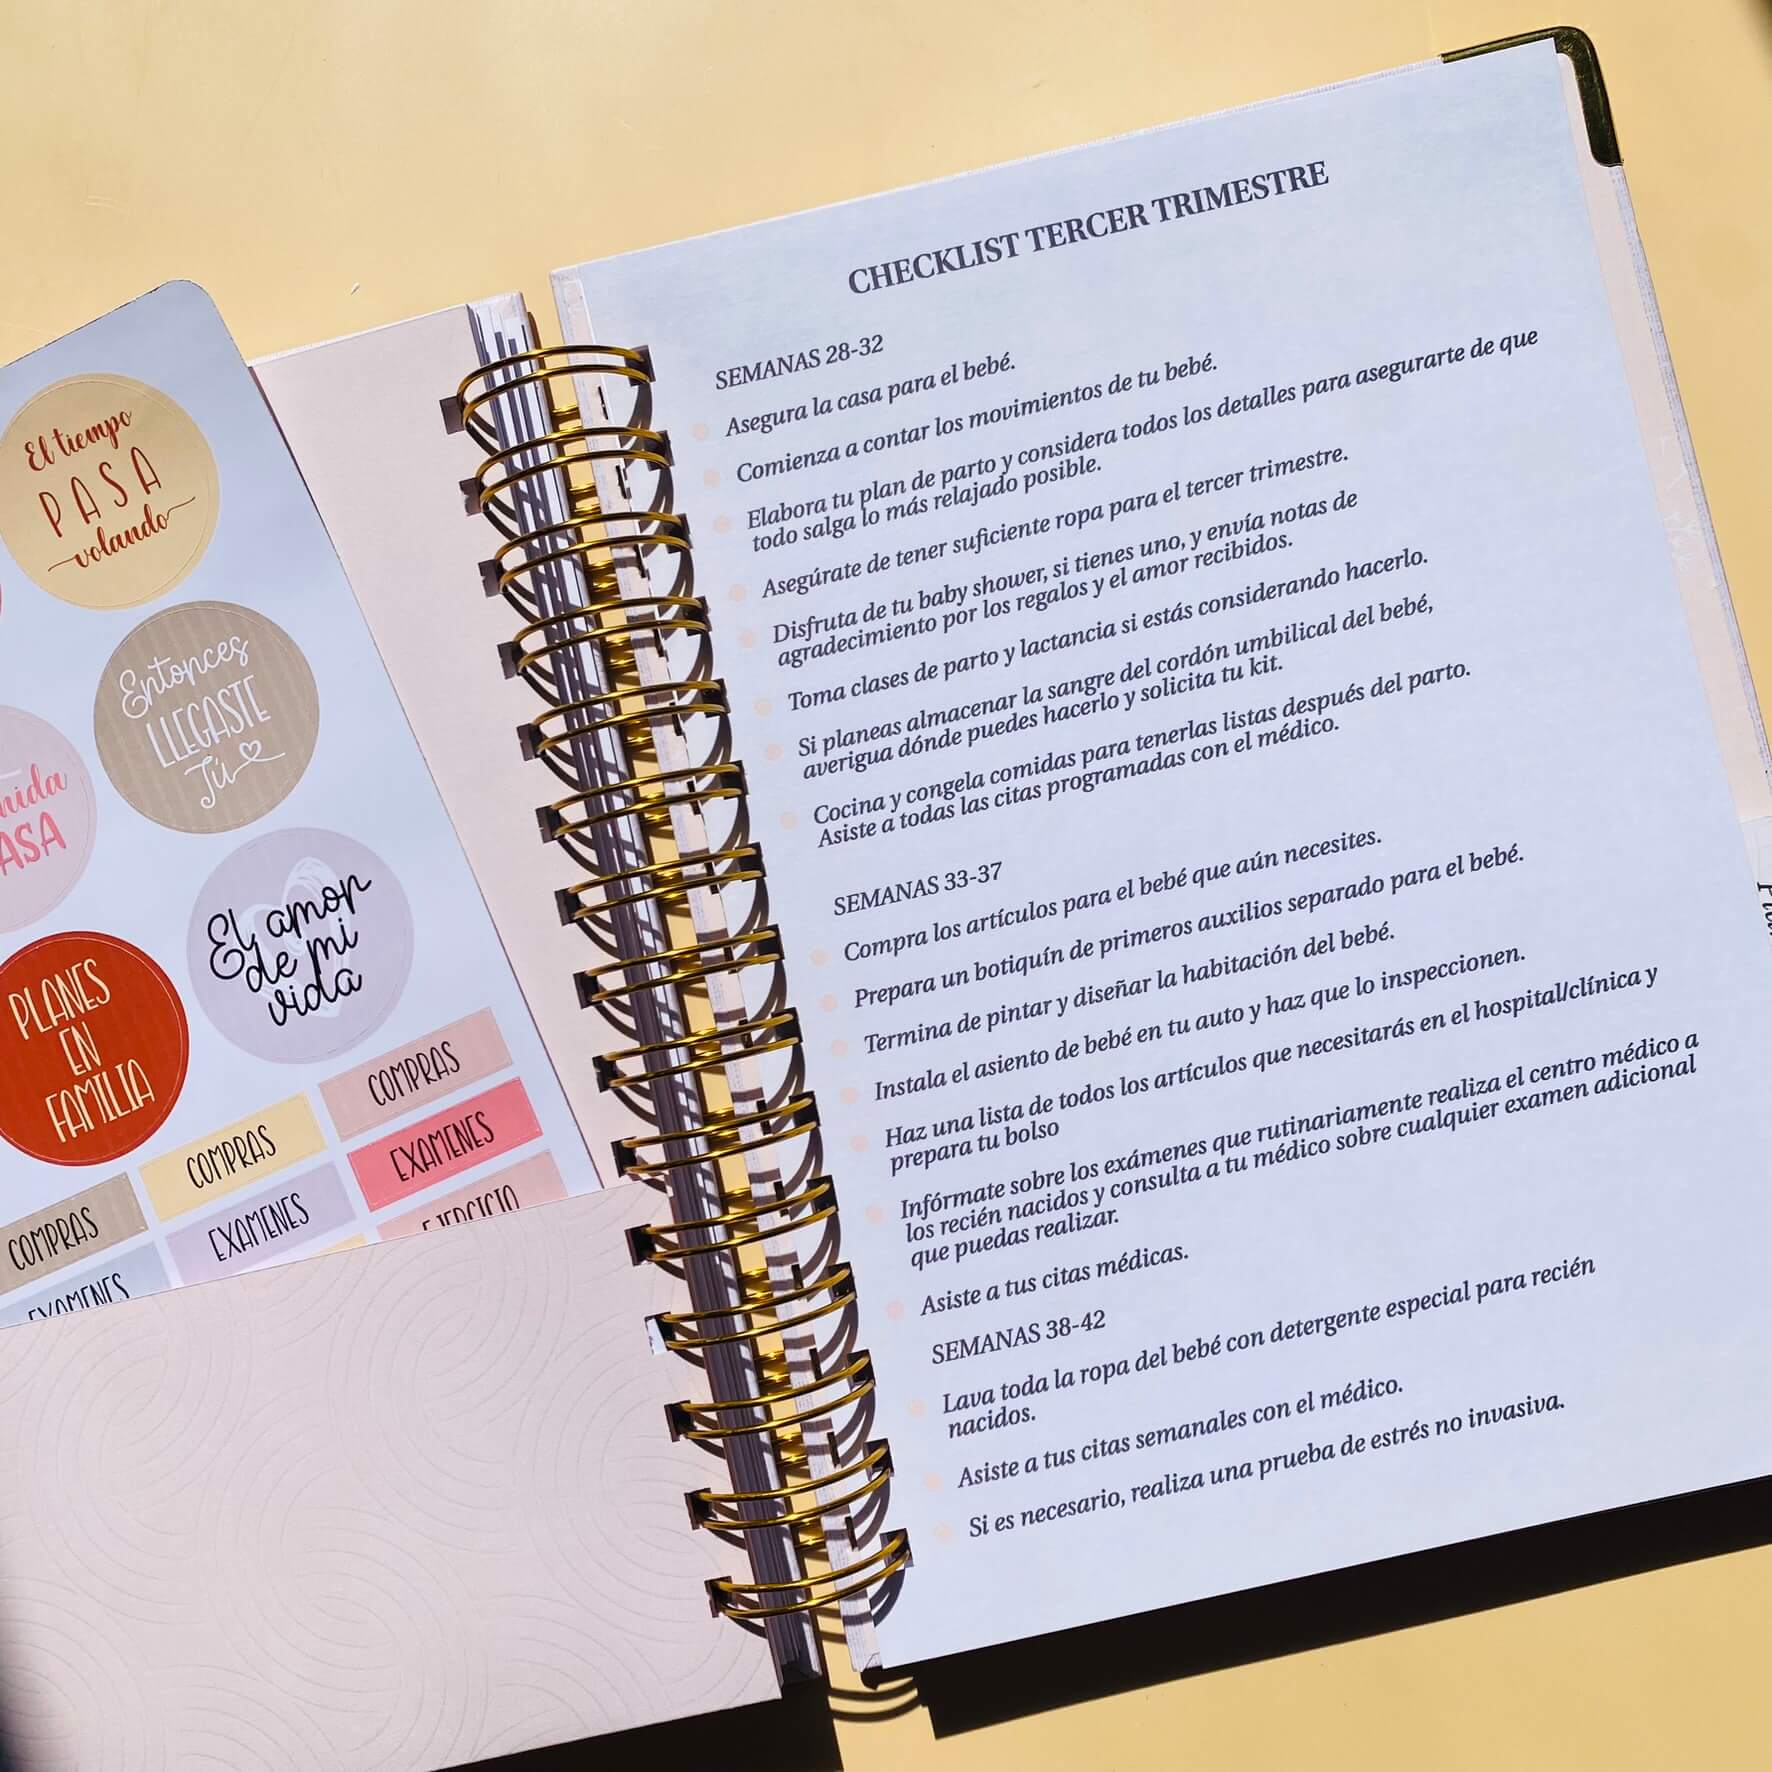 El tiempo
PASA
volando
Entonces
LLEGASTE
Tú
ASA
El amor
de mi
vida
PLANES
EN
FAMILIA
COMPRAS
COMPRAS
EXAMENES
COMPRAS
EXAMENES
EJERCICIO
EXAMENES
CHECKLIST TERCER TRIMESTRE
SEMANAS 28-32
Asegura la casa para el bebé.
Comienza a contar los movimientos de tu bebé.
Elabora tu plan de parto y considera todos los detalles para asegurarte de que
todo salga lo más relajado posible.
Asegúrate de tener suficiente ropa para el tercer trimestre.
Disfruta de tu baby shower, si tienes uno, y envía notas de
agradecimiento por los regalos y el amor recibidos.
Toma clases de parto y lactancia si estás considerando hacerlo.
Si planeas almacenar la sangre del cordón umbilical del bebé,
averigua dónde puedes hacerlo y solicita tu kit.
Cocina y congela comidas para tenerlas listas después del parto.
Asiste a todas las citas programadas con el médico.
SEMANAS 33-37
Compra los artículos para el bebé que aún necesites.
Prepara un botiquín de primeros auxilios separado para el bebé.
Termina de pintar y diseñar la habitación del bebé.
Instala el asiento de bebé en tu auto y haz que lo inspeccionen.
Haz una lista de todos los artículos que necesitarás en el hospital/clínica y
prepara tu bolso
Infórmate sobre los exámenes que rutinariamente realiza el centro médico a
los recién nacidos y consulta a tu médico sobre cualquier examen adicional
que puedas realizar.
Asiste a tus citas médicas.
SEMANAS 38-42
Lava toda la ropa del bebé con detergente especial para recién
nacidos.
Asiste a tus citas semanales con el médico.
Si es necesario, realiza una prueba de estrés no invasiva.